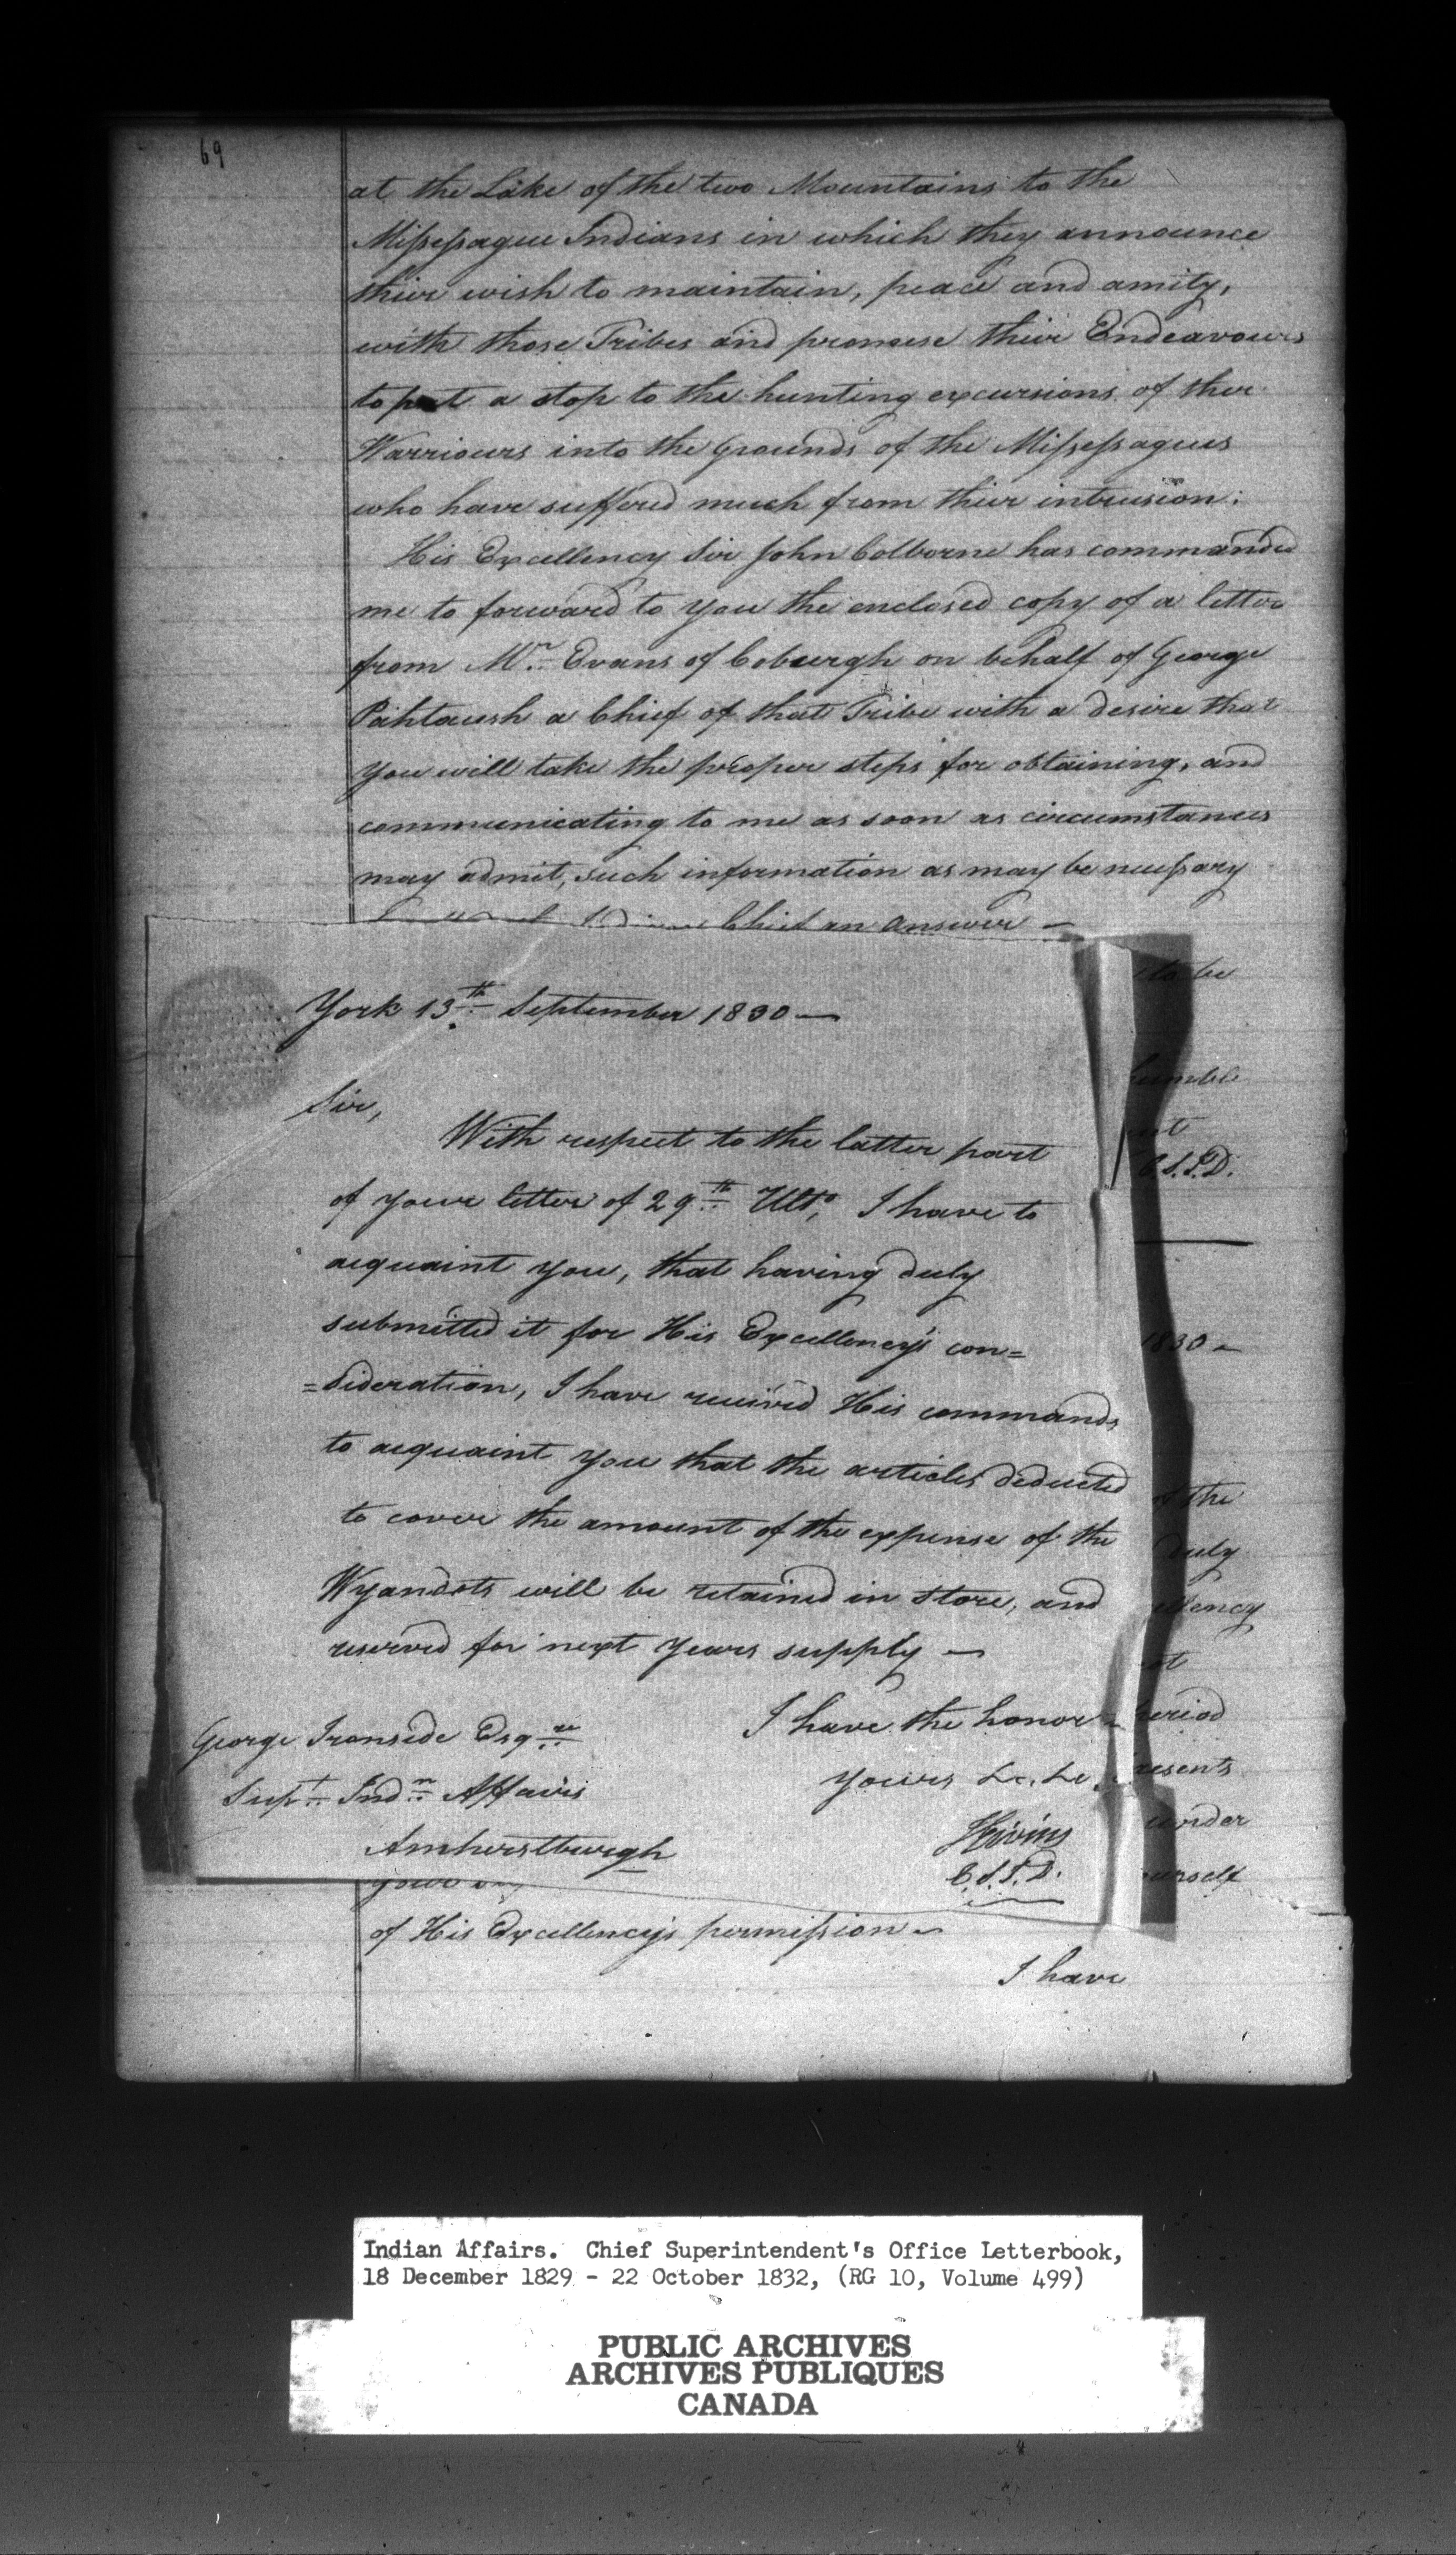 69
at the Lake of the two Mountains to the
Missessague Indians in which they announce
thier wish to maintain, peace and amity,
with those Tribes and promise thier Endeavours
to put a stop to the hunting excursions of thier
Warriours into the Grounds of the Missessagues
who have suffered much from thier intrusion:
His Excellency Sir John Colborne has commanded
me to forward to you the enclosed copy of a letter
from Mr. Evans of Coburgh on behalf of George
Pahtaush a Chief of that Tribe with a desire that
you will take the proper steps for obtaining, and
communicating to me as soon as circumstances
may admit, such information as may be necessary
Chief an answer —
to be
humble
C.S.I.D.
1830 —
of the
duly
period
under
York 13th September 1830 —
Sir,
With respect to the latter part
of your letter of 29th Ulto, I have to
acquaint you, that having duly
submitted it for His Excellency's con=
=sideration, I have received His commands
to acquaint you that the articles deducted
to cover the amount of the expense of the
Wyandots will be retained in store, and
reserved for next years supply —
I have the honor
Yours &c. &c.
JGivins
C.S.I.D.
George Ironside Esqre
Supt. Indn Affairs
Amherstburgh
of His Excellency's permission —
I have
Indian Affairs. Chief Superintendent's Office Letterbook,
18 December 1829 - 22 October 1832, (RG 10, Volume 499)
PUBLIC ARCHIVES
ARCHIVES PUBLIQUES
CANADA